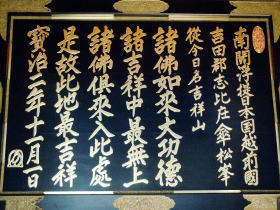 南閻浮提日本国越前國
吉田郡志比庄傘松峯
從今日名吉祥山
諸佛如来大功徳
諸吉祥中最無上
諸佛俱來入此處
是故此地最吉祥
寶治二年十一月一日